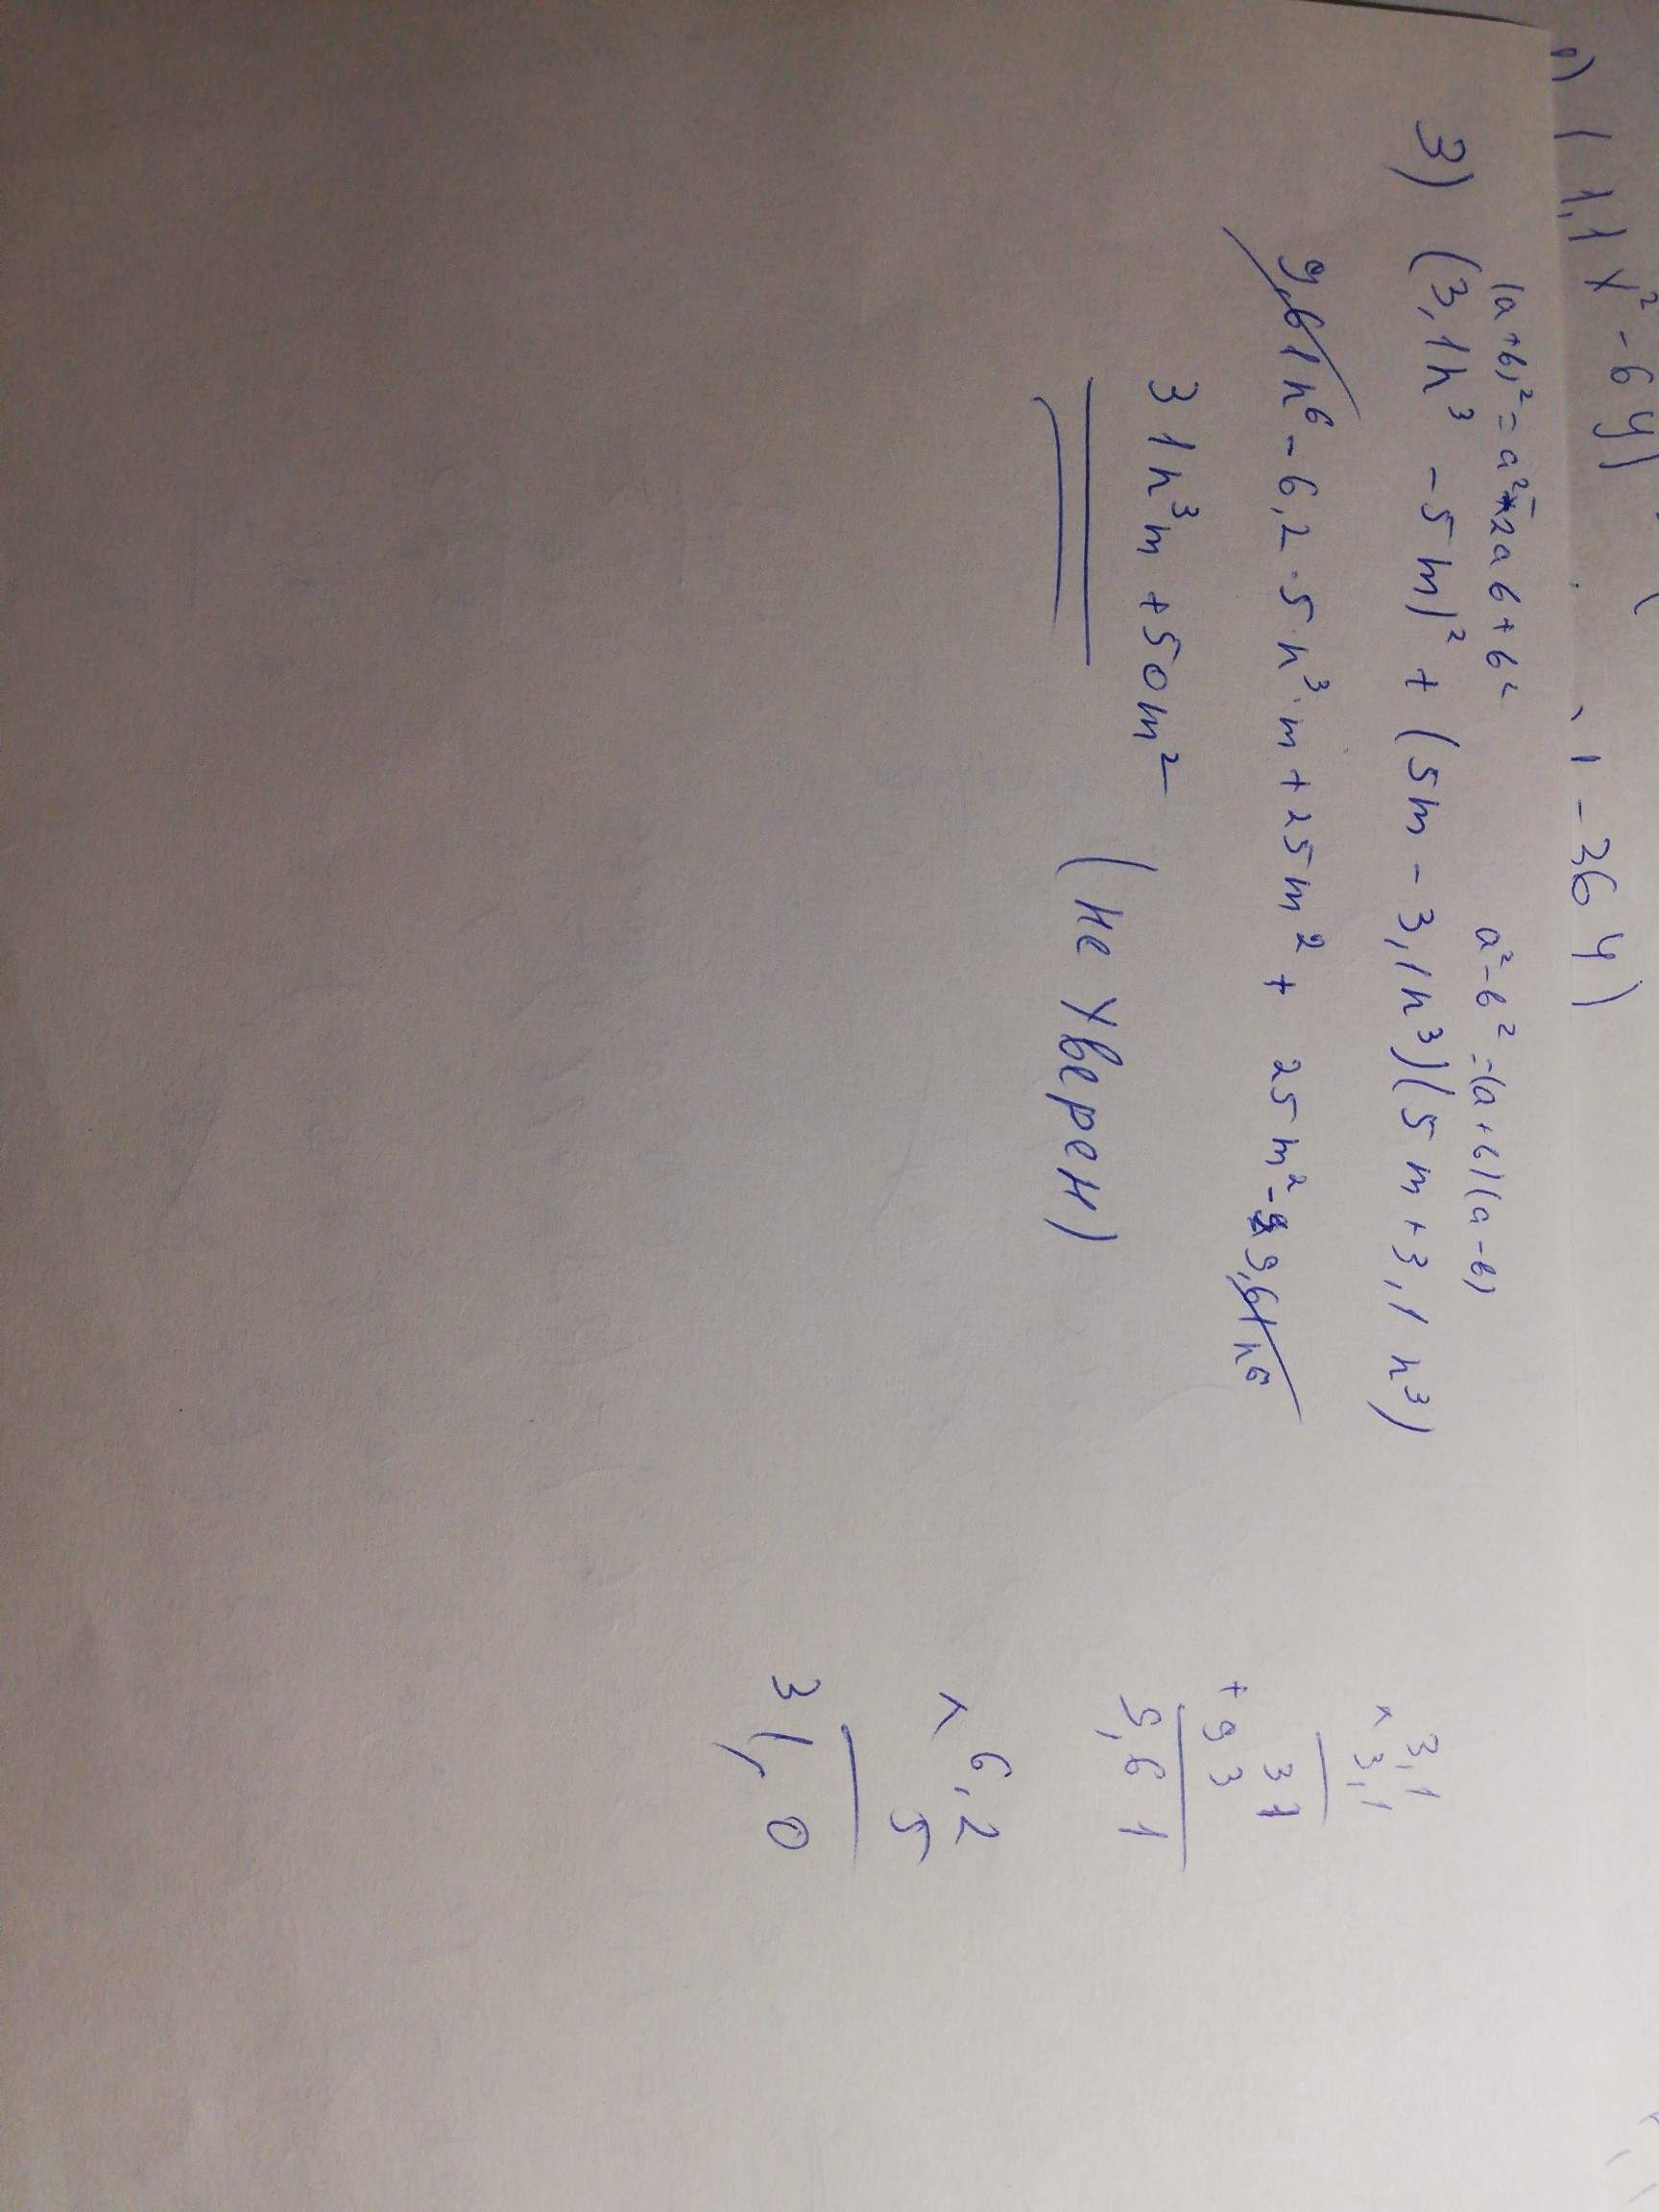 (1,1x² - 6y)
1 - 36y)
(a+b)² = a² - 2ab + b²
a² - b² = (a+b)(a-b)
3) (3,1n³ - 5m)² + (5m - 3,1n³)(5m + 3,1n³)
9,61n⁶ - 6,2 · 5 · n³ · m + 25m² + 25m² - 9,61n⁶
31n³m + 50m²
(не уверен)
3,1
× 3,1
31
+ 93
9,61
× 6,2
5
31,0